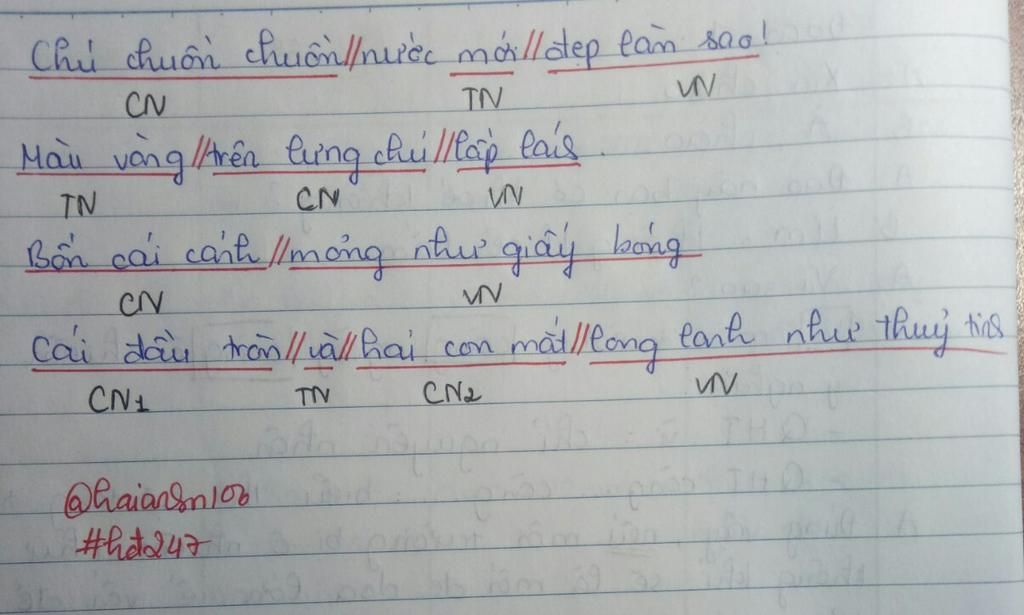 Chú chuồn chuồn//nước mới//đẹp làm sao!
CN TN VN
Màu vàng//trên lưng chú//lấp lánh.
TN CN VN
Bốn cái cánh//mỏng như giấy bóng
CN VN
Cái đầu tròn//và//hai con mắt//long lanh như thuỷ tinh
CN1 TN CN2 VN
@haian8n106
#hd247